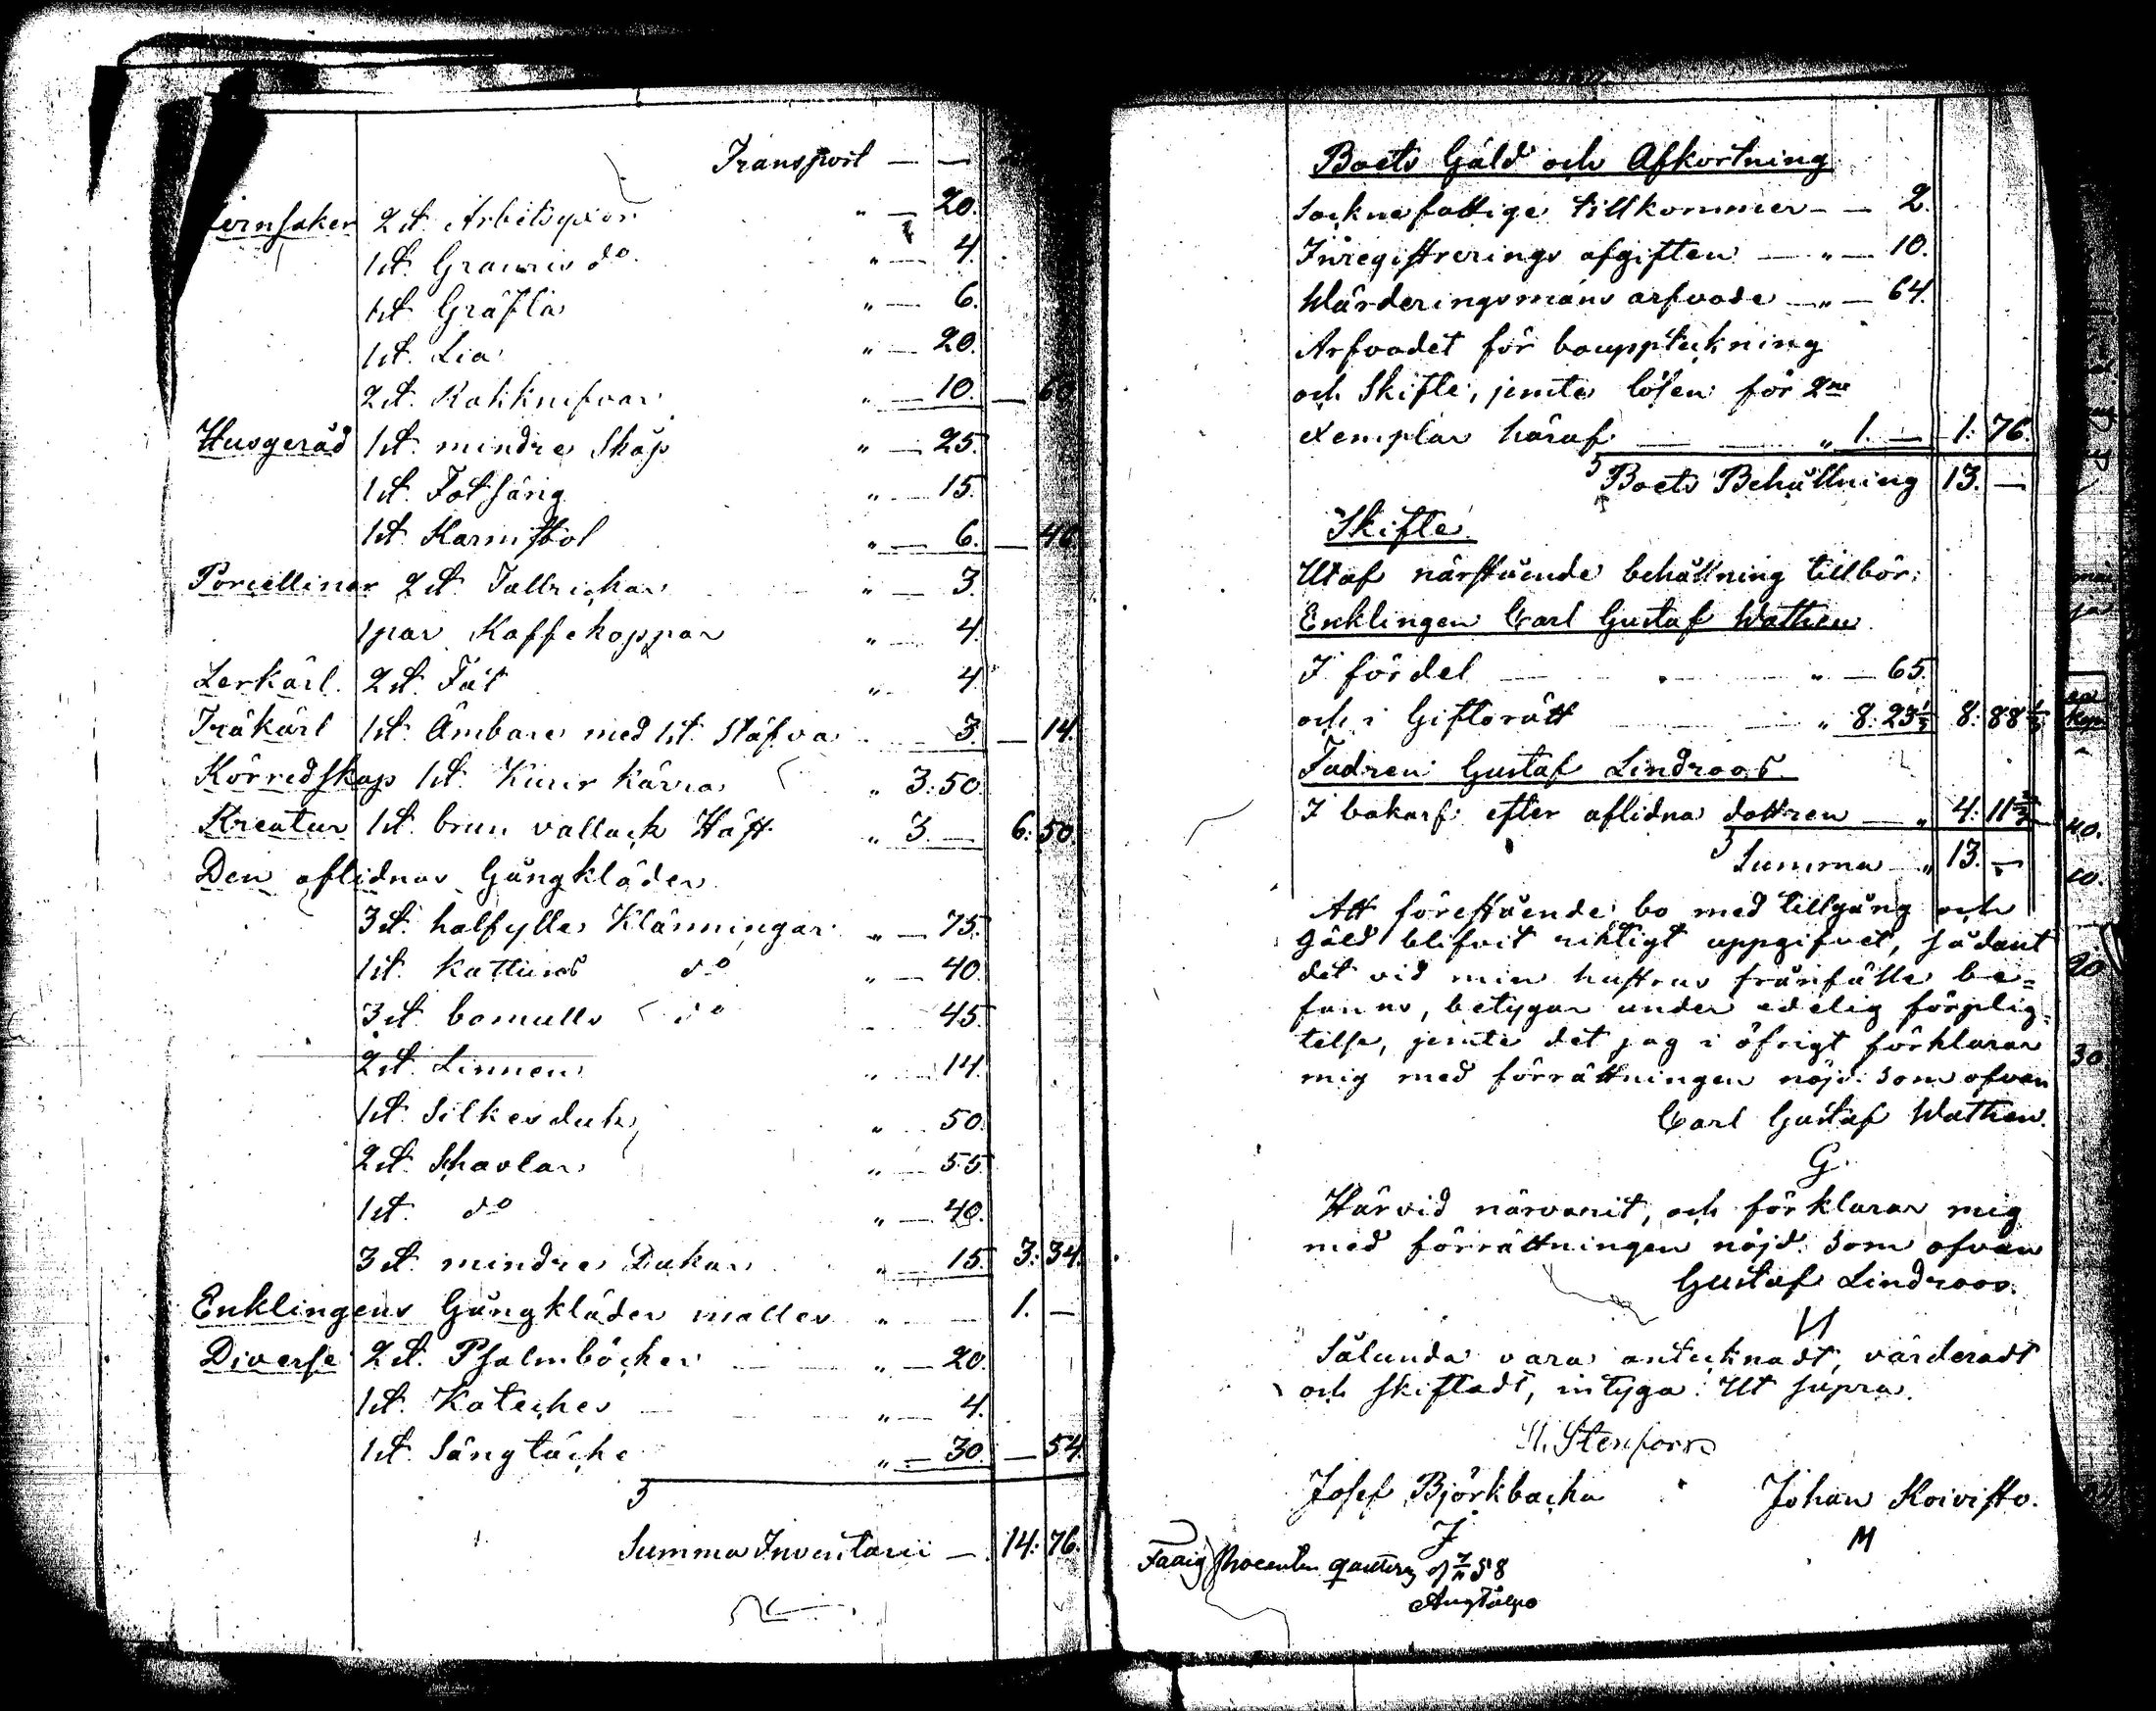 Transport — —
Jernsaker 2 st. Arbetsyxor " — 20.
1 st. Grauris do " — 4.
1 st. Gräfta " — 6.
1 st. Lia " — 20.
2 st. Rakknifvar " — 10. — 60
Husgeråd 1 st. mindre Skåp " — 25.
1 st. Fotsäng " — 15.
1 st. Karmstol " — 6. — 46.
Porcelliner 2 st. Tallrickar " — 3.
1 par Kaffekoppar " — 4.
Lerkärl. 2 st. Fat " 4.
Träkärl 1 st. Ämbare med 1 st. Stäfva — 3. — 14.
Körredskap 1 st. Kurir kärra " 3:50.
Kreatur 1 st. brun vallack Häst " 3. — 6:50.
Den aflidnas Gångkläder
3 st. halfylle Klänningar " — 75.
1 st. Kattuns do " — 40.
3 st. bomulls do 45.
2 st. Linnen " — 14.
1 st. Silkesduk " 50.
2 st. Schavlar " — 55
1 st. do " — 40.
3 st. mindre Dukar " — 15. 3:34.
Enklingens Gångkläder " — 1. —
Diverse 2 st. Psalmböcker — " — 20.
1 st. Kateches — " — 4.
1 st. Sängtäcke " — 30. — 54.
Summa Inventarii — 14:76.
Boets Gäld och Afkortning
Socknefattige tillkommer — — 2.
Inregistrerings afgiften — " — 10.
Wärderingsmäns arfvode — " — 64.
Arfvodet för bouppteckning
och Skifte, jemte lösen för 2ne
exemplar häraf — — " 1. — 1: 76.
Boets Behållning 13. —
Skifte.
Utaf närstående behållning tillbör:
Enklingen Carl Gustaf Wathen
I fördel — " — 65.
och i Giftorätt — " 8:23⅓ 8:88⅓
Fadren Gustaf Lindroos.
I bakarf efter aflidna dottren — " 4:11⅔
Summa — " 13. —
Att förestående bo med tillgång och
gäld blifvit riktigt uppgifvet, sådant
det vid min hustrus frånfälle be=
fanns, betygar under edelig förplig=
telse, jemte det jag i öfrigt förklarar
mig med förrättningen nöjd. Som ofvan
Carl Gustaf Wathen.
G.
Härvid närvarit, och förklarar mig
med förrättningen nöjd. Som ofvan
Gustaf Lindroos.
Sålunda vara antecknadt, värderadt
och skiftadt, intyga. Ut supra.
Josef Björkbacka Johan Koivisto.
J M